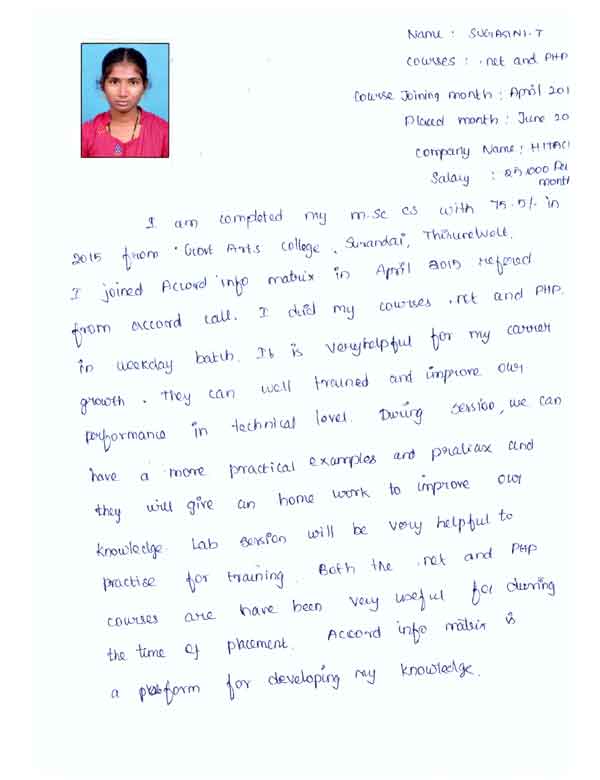 Name : SUGASINI.T
Courses : .net and PHP
Course Joining month : April 201
Placed month : June 20
Company Name : HITAC
Salary : 25,000 Per
month
I am completed my M.Sc CS with 75.5% in
2015 from Govt Arts College, Surandai, Thirunelveli.
I joined Accord info matrix in April 2015 refered
from accord call. I did my courses .net and PHP.
in weekday batch. It is veryhelpful for my carrier
growth. They can well trained and improve our
performance in technical level. During session, we can
have a more practical examples and and
they will give an home work to improve our
knowledge. Lab session will be very helpful to
practise for training. Both the .net and PHP
courses are have been very useful for during
the time of placement. Accord info matrix is
a platform for developing my knowledge.